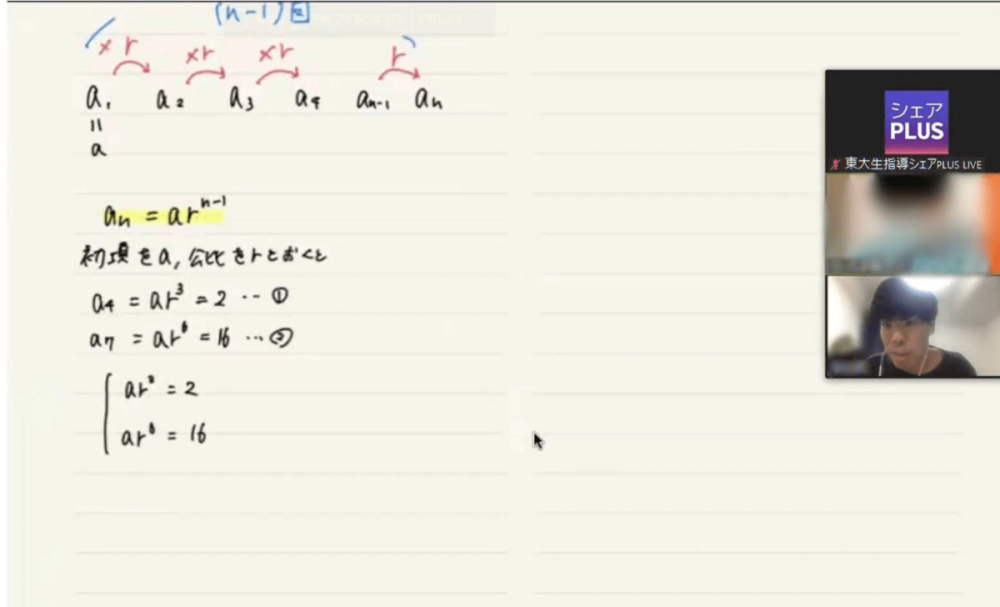 (n-1)回
×r ×r ×r r
a₁ a₂ a₃ a₄ aₙ₋₁ aₙ
=
a
aₙ = arⁿ⁻¹
初項をa,公比をrとおくと
a₄ = ar³ = 2 … ①
a₇ = ar⁶ = 16 … ②
ar³ = 2
ar⁶ = 16
シェア
PLUS
東大生指導シェアPLUS LIVE